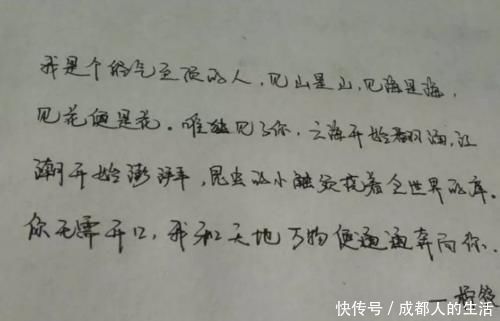 我是个俗气至顶的人，见山是山，见海是海，
见花便是花。唯独见了你，云海开始翻涌，江
潮开始澎湃，昆虫的小触须挠着全世界的痒。
你无需开口，我和天地万物便通通奔向你。
快传号 / 成都人的生活